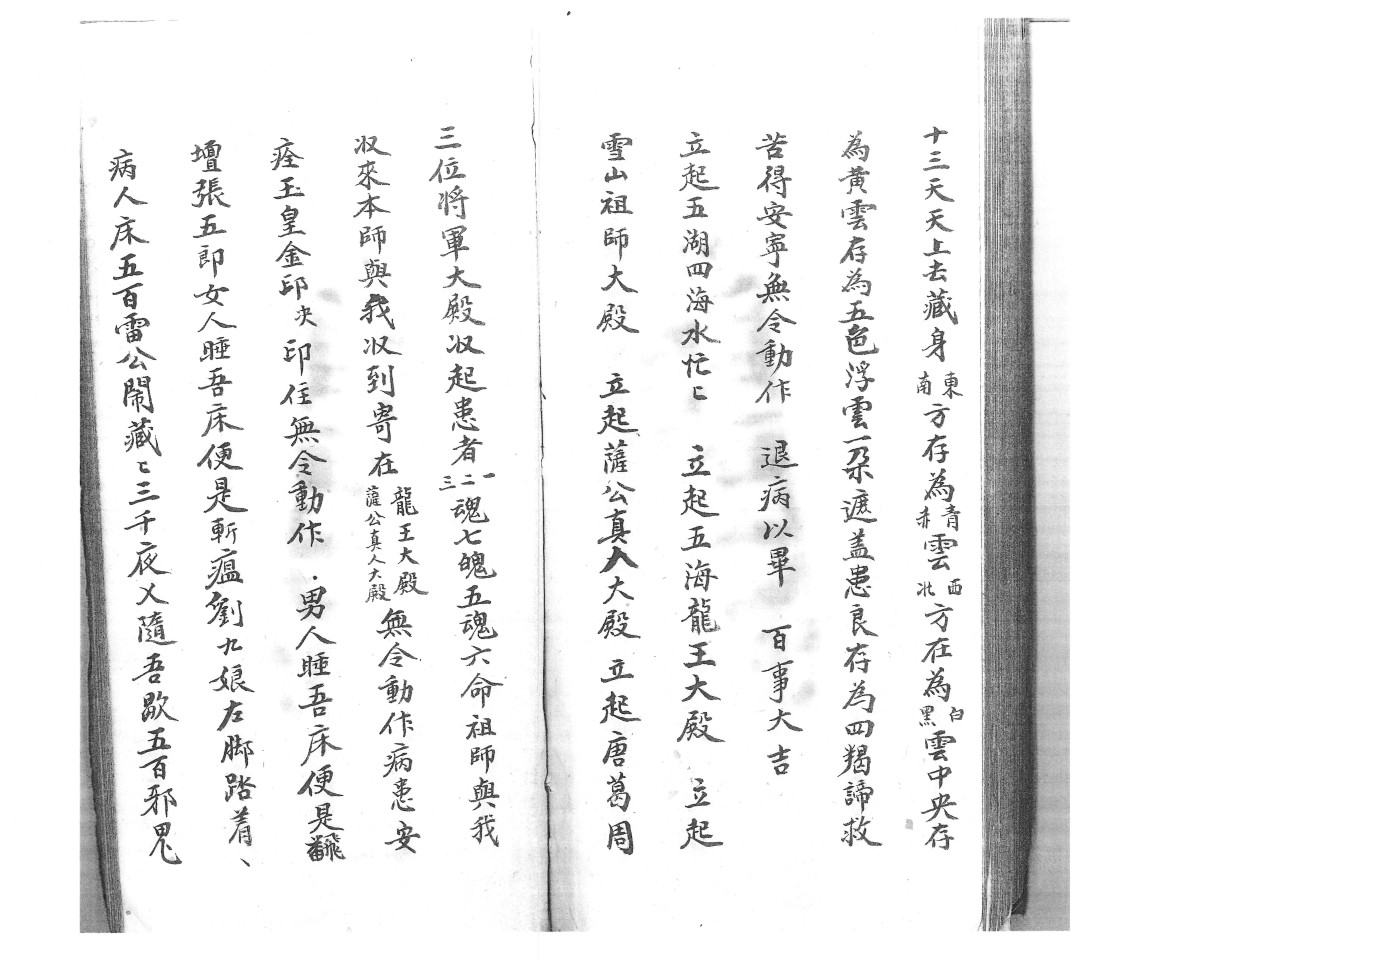 十三天天上去藏身東南方存為青赤雲西北方在為白黑雲中央存
為黃雲存為五色浮雲一朶遮盖患良存為四羯諦救
苦得安寧無令動作　退病以畢　百事大吉
立起五湖四海水忙〻　立起五海龍王大殿　立起
雪山祖師大殿　立起薩公真人大殿　立起唐葛周
三位将軍大殿収起患者一二三魂七魄五魂六命祖師與我
収來本師與我収到寄在龍王大殿薩公真人大殿無令動作病患安
痊玉皇金印决印住無令動作　男人睡吾床便是飜
壇張五郎女人睡吾床便是斬瘟劉九娘左脚踏着、
病人床五百雷公鬧藏〻三千夜乂隨吾歇五百邪鬼